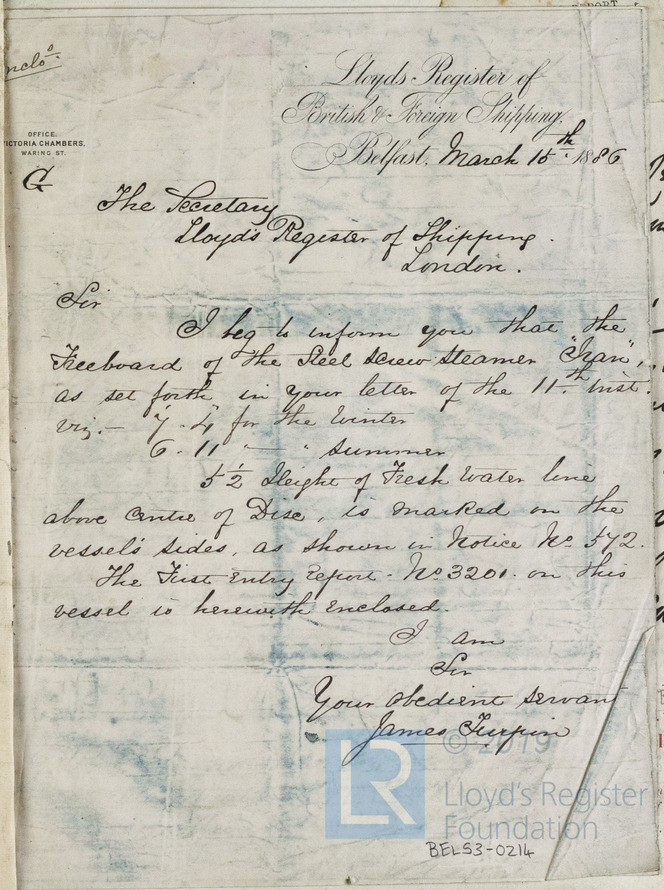 REPORT
nclo.s
Lloyds Register of
British & Foreign Shipping.
OFFICE.
VICTORIA CHAMBERS,
WARING ST.
Belfast. March 15th. 1886
G
The Secretary
Lloyd's Register of Shipping.
London.
Sir
I beg to inform you that the
Freeboard of the Steel Screw Steamer "Iran",
as set forth in your letter of the 11th. inst.
viz.- 7.4 for the Winter
6.11 — " Summer
5½ Height of Fresh Water line
above Centre of Disc, is marked on the
vessel's sides, as shown in Notice No 572.
The First Entry Report. No 3201. on this
vessel is herewith enclosed.
I am
Sir
Your obedient servant
James Turpin
© 2019
LR
Lloyd's Register
Foundation
BELS3-0214